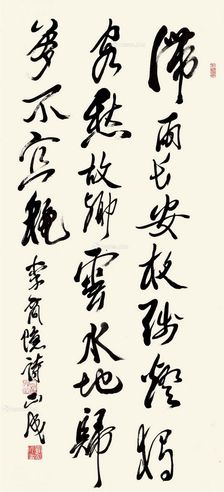 滯雨長安夜殘燈獨
客愁故鄉雲水地歸
夢不宜秋 李商隱詩